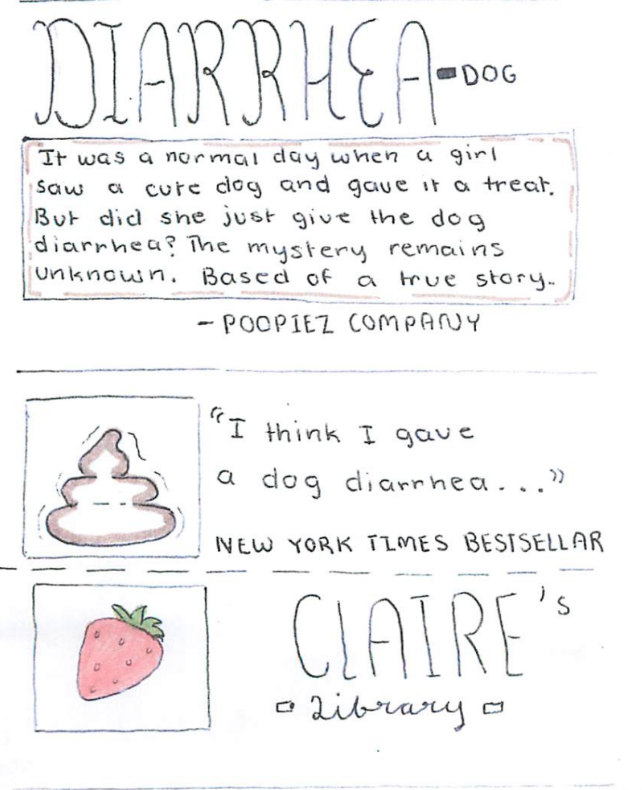 DIARRHEA-DOG
It was a normal day when a girl
saw a cute dog and gave it a treat.
But did she just give the dog
diarrhea? The mystery remains
unknown. Based of a true story.
- POOPIEZ COMPANY
"I think I gave
a dog diarrhea..."
NEW YORK TIMES BESTSELLAR
CLAIRE's
Library